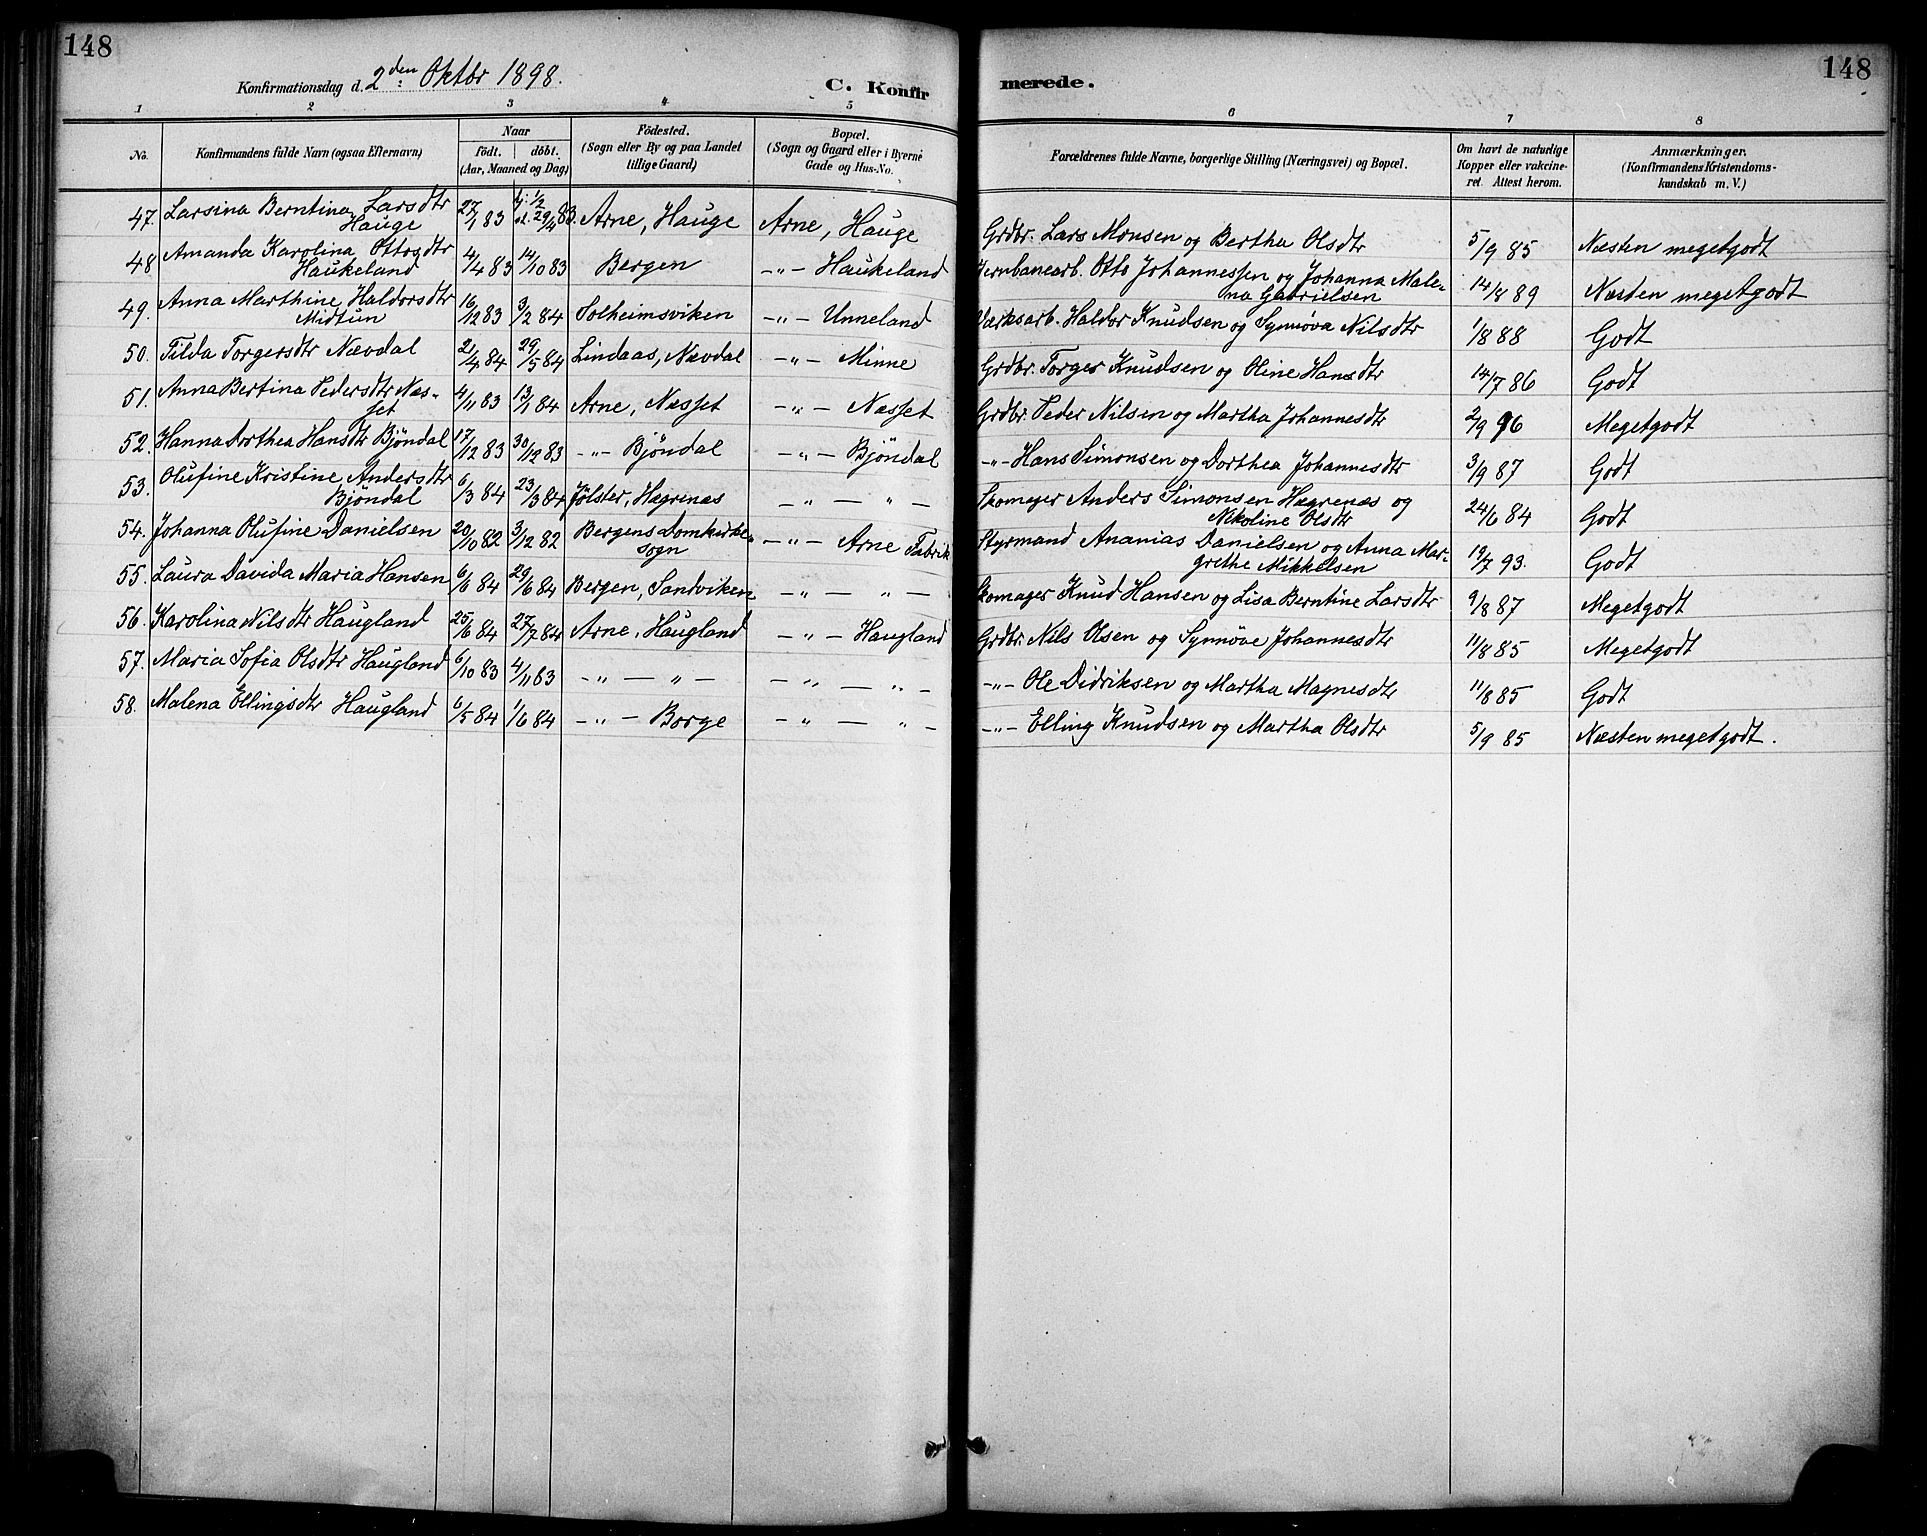 148
148
Konfirmationsdag d. 2den Oktbr 1898.
C. Konfir
merede.
1 2 3 4 5 6 7 8
No. Konfirmandens fulde Navn (ogsaa Efternavn) Naar födt. döbt. (Aar, Maaned og Dag) Födested. (Sogn eller By og paa Landet tillige Gaard) Bopæl. (Sogn og Gaard eller i Byerne Gade og Hus-No. Forældrenes fulde Navne, borgerlige Stilling (Næringsvei) og Bopæl. Om havt de naturlige Kopper eller vakcineret. Attest herom. Anmærkninger. (Konfirmandens Kristendomskundskab m. V.)
47. Larsina Berntina Larsdtr Hauge 27/1 83 hj. 1/2 d. 29/4 83 Arne, Hauge Arne, Hauge Grdbr. Lars Monsen og Bertha Olsdtr 5/9 85 Næsten megetgodt
48 Amanda Karolina Ottosdtr Haukeland 4/4 83 14/10 83 Bergen -"- Haukeland Jernbanearb. Otto Johannessen og Johanna Malena Gabrielsen 14/8 89 Næsten megetgodt
49. Anna Marthine Haldorsdtr Midtun 16/12 83 3/2 84 Solheimsviken -"- Unneland Værksarb. Haldor Knudsen og Synnøva Nilsdtr 1/8 88 Godt
50. Tilda Torgersdtr Nævdal 21/4 84 29/5 84 Lindaas, Nævdal -"- Minne Grdbr. Torger Knudsen og Oline Hansdtr 14/7 86 Godt
51. Anna Bertina Pedersdtr Næsset 4/11 83 13/1 84 Arne, Næsset -"- Næsset Grdbr. Peder Nilsen og Martha Johannesdtr 2/9 96 Megetgodt
52. Hanna Dorthea Hansdtr Bjöndal 17/12 83 30/12 83 -"- Bjöndal -"- Bjöndal -"- Hans Simonsen og Dorthea Johannesdtr 3/9 87 Godt
53. Olufine Kristine Andersdtr Bjöndal 6/3 84 23/3 84 Jölster, Hegrenæs -"- -"- Skomager Anders Simonsen Hegrenæs og Nikoline Olsdtr 24/6 84 Godt
54. Johanna Olufine Danielsen 20/10 82 3/12 82 Bergens Domkirkesogn -"- Arne Fabrik Styrmand Ananias Danielsen og Anna Margrethe Mikkelsen 19/7 93. Godt
55. Laura Davida Maria Hansen 6/6 84 29/6 84 Bergen, Sandviken -"- -"- Skomager Knud Hansen og Lisa Berntine Larsdtr 9/8 87 Megetgodt
56. Karolina Nilsdtr Haugland 25/6 84 27/7 84 Arne, Haugland -"- Haugland Grdbr. Nils Olsen og Synnøve Johannesdtr 11/8 85 Megetgodt
57. Maria Sofia Olsdtr Haugland 6/10 83 4/11 83 -"- -"- -"- -"- -"- Ole Didriksen og Martha Magnesdtr 11/8 85 Godt
58. Malena Ellingsdtr Haugland 6/5 84 1/6 84 -"- Borge -"- -"- -"- Elling Knudsen og Martha Olsdtr 5/9 85 Næsten megetgodt.